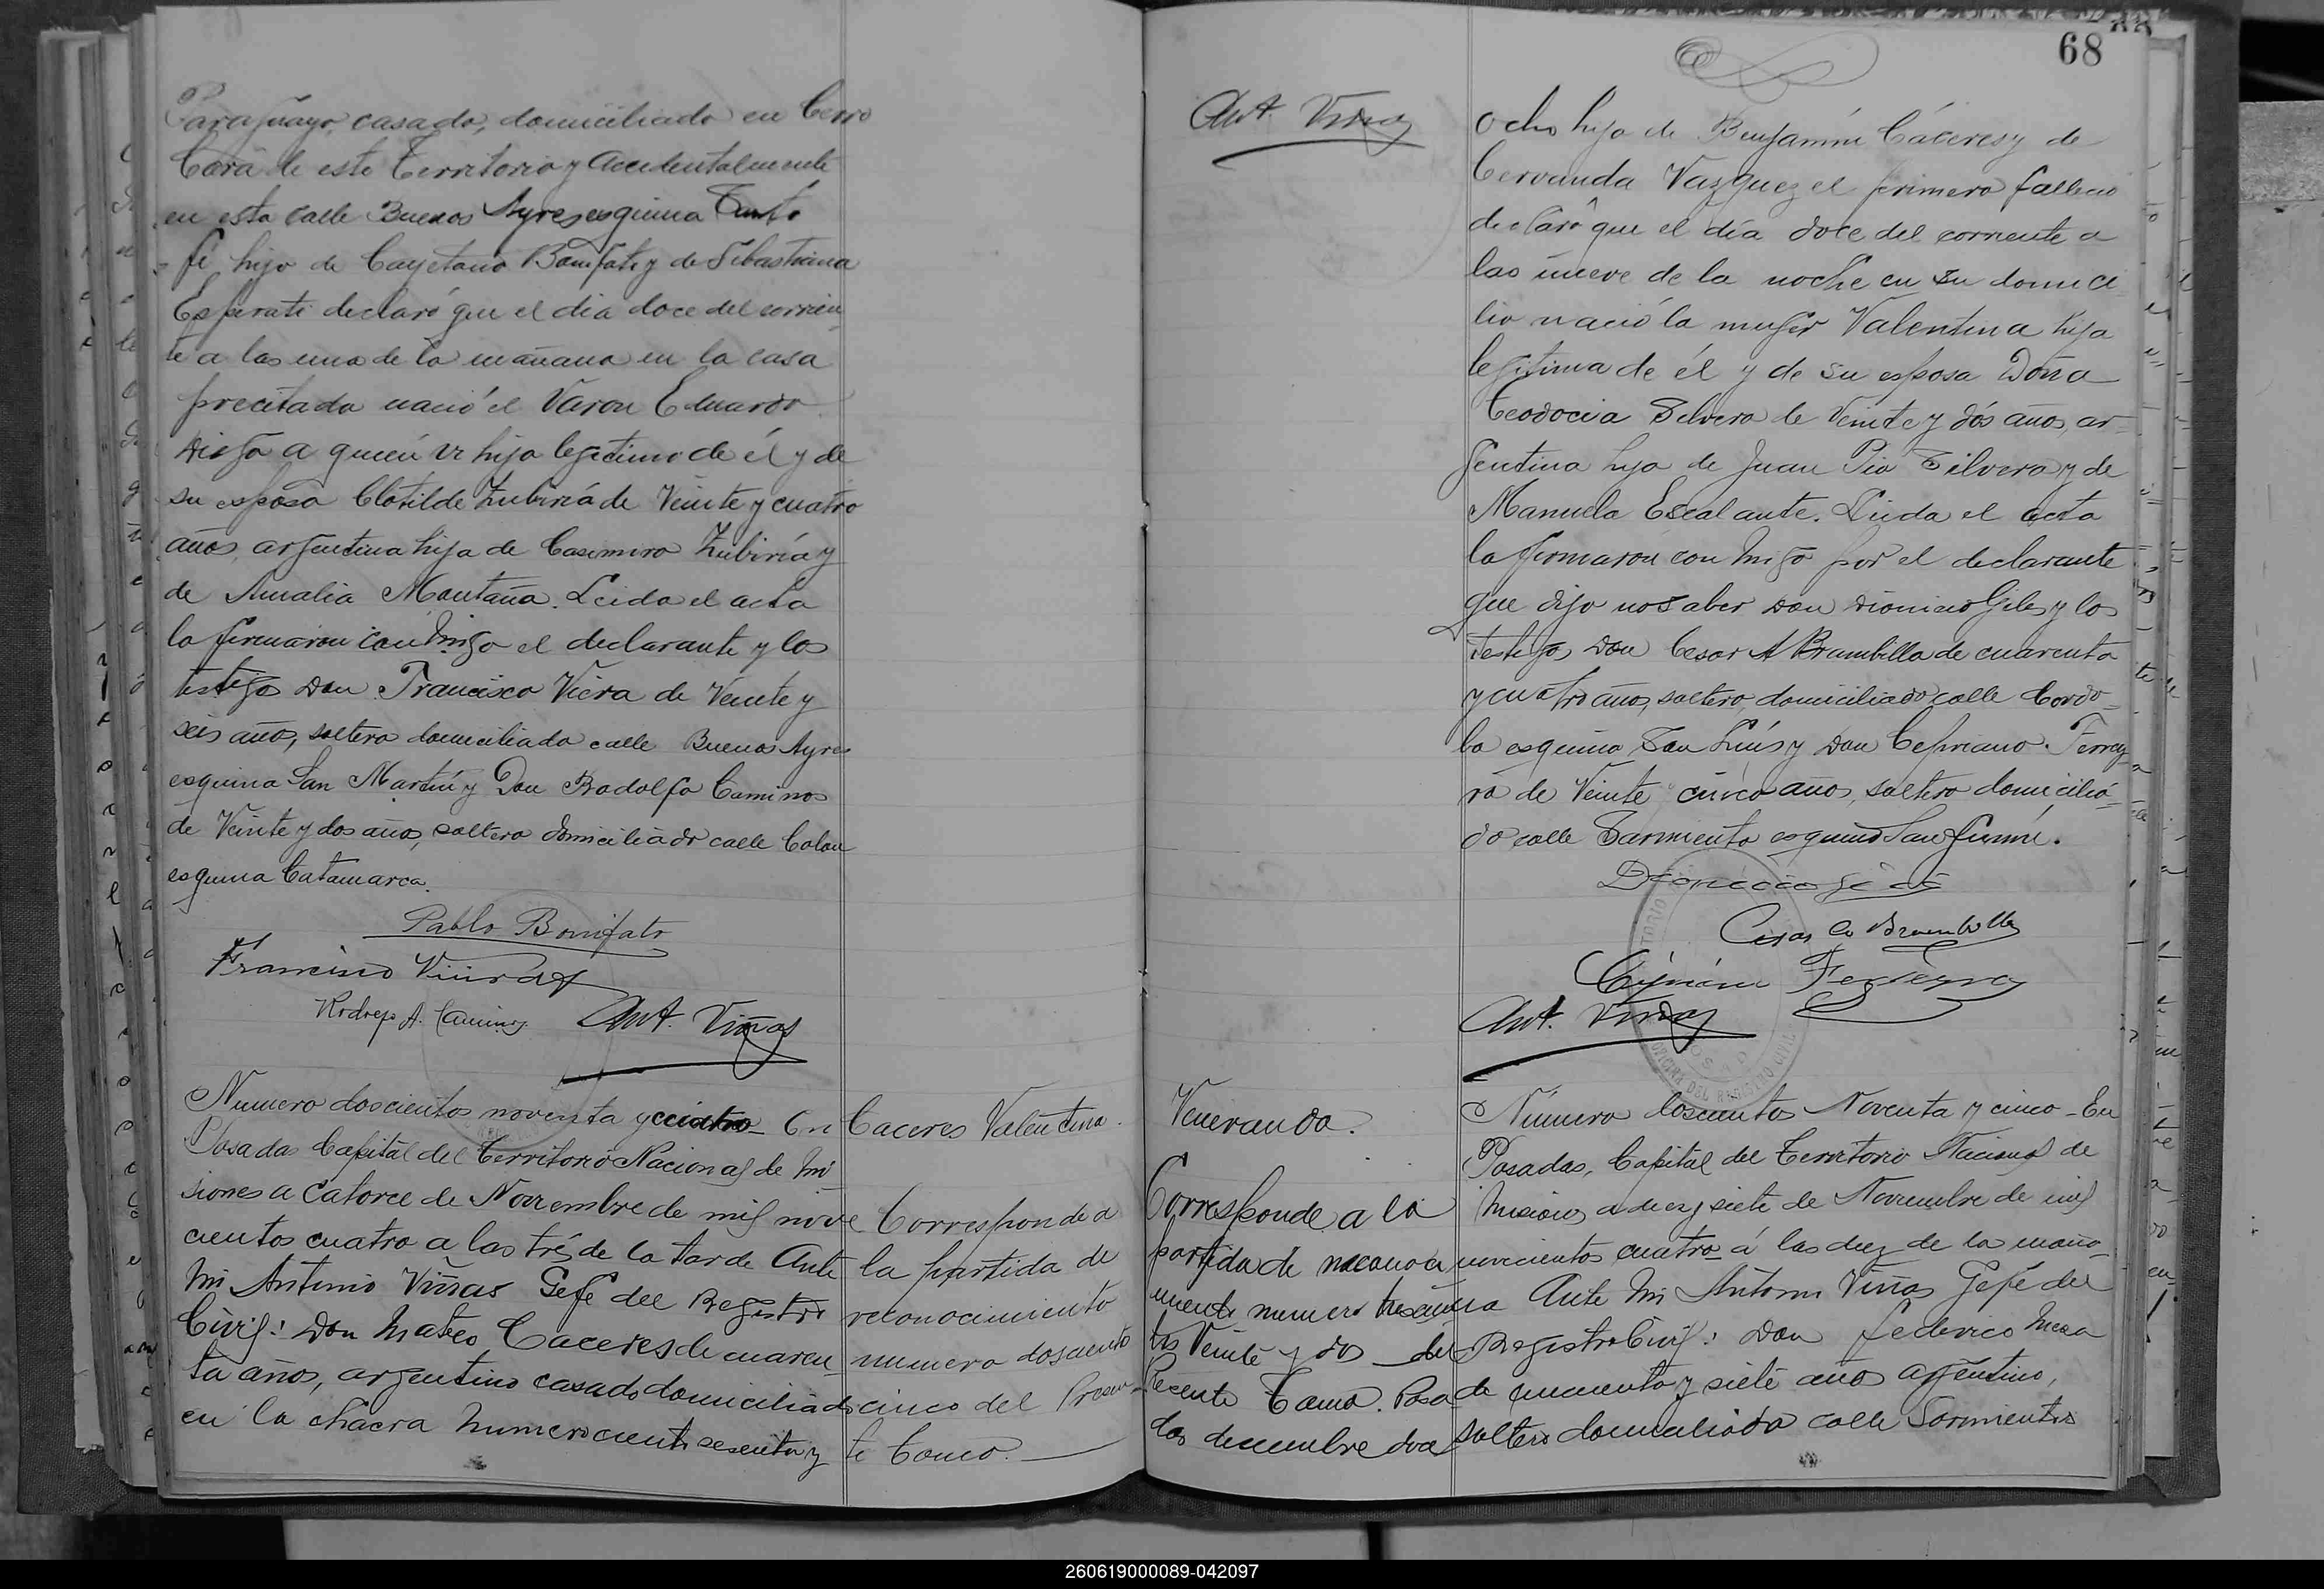 Paraguayo, casado, domiciliado en Cerro
Corá de este Territorio y accidentalmente
en esta calle Buenos Ayres esquina Santa
fé hijo de Cayetano Bonifato y de Sebastiana
Esperati declaró que el dia doce del corrien
te a las una de la mañana en la casa
precitada nació el Varon Eduardo
Diego a quien vi hijo legitimo de él y de
su esposa Clotilde Zubiría de Veinte y cuatro
años, argentina hija de Casimiro Zubiría y
de Amalia Montaña. Leida el acta
la firmaron conmigo el declarante y los
testigos Don Francisco Viera de Veinte y
seis años, soltero domiciliado calle Buenos Ayres
esquina San Martin y Don Rodolfo Caminos
de Veinte y dos años, soltero domiciliado calle Colon
esquina Catamarca.
Pablo Bonifato
Francisco
A. Caminos Ant. Viñas
Numero doscientos noventa y cuatro - En
Posadas Capital del Territorio Nacional de Mi
siones a Catorce de Noviembre de mil nove
cientos cuatro a las trés de la tarde Ante
mi Antonio Viñas Gefe del Registro
Civil: Don Mateo Caceres de cuaren
ta años, argentino casado domiciliado
en la chacra numero ciento sesenta y
Caceres Valentina.
Corresponde a
la partida de
reconocimiento
numero doscientos
cinco del Presen
te Tomo.
68
Ant. Viñas
Veneranda.
Corresponde a la
partida de reconoci
miento numero trescien
tos Veinte y dos del
Presente Tomo. Posa
das diciembre doce
ocho hijo de Benjamín Cáceres y de
Cervanda Vazquez el primero fallecio
declaró que el día doce del corriente a
las nueve de la noche en su domici
lio nació la mujer Valentina hija
legitima de él y de su esposa Doña
Teodocia Silvera de Veinte y dós años, ar
gentina hija de Juan Pio Silvera y de
Manuela Escalante. Leida el acta
la firmaron conmigo por el declarante
que dijo no saber Don Dionicio Giles y los
testigos Don Cesar A Brambilla de cuarenta
y cuatro años, soltero, domiciliado calle Cordo
ba esquina San Luis y Don Cepriano Ferrey
ra de Veinte cinco años, soltero domicilia
do calle Sarmiento esquina San
Dionicio
Cesar A Brambilla
Ciprian Ferreyra
Ant. Viñas
OFICINA DEL REGISTRO CIVIL
Número doscientos Noventa y cinco - En
Posadas, Capital del Territorio Nacional de
Misiones a diez y siete de Noviembre de mil
novecientos cuatro á las diez de la maña
na Ante Mi Antonio Viñas Gefe del
Registro Civil: Don Federico Meza
de cincuenta y siete años argentino,
soltero domiciliado calle Sarmiento
260619000089-042097